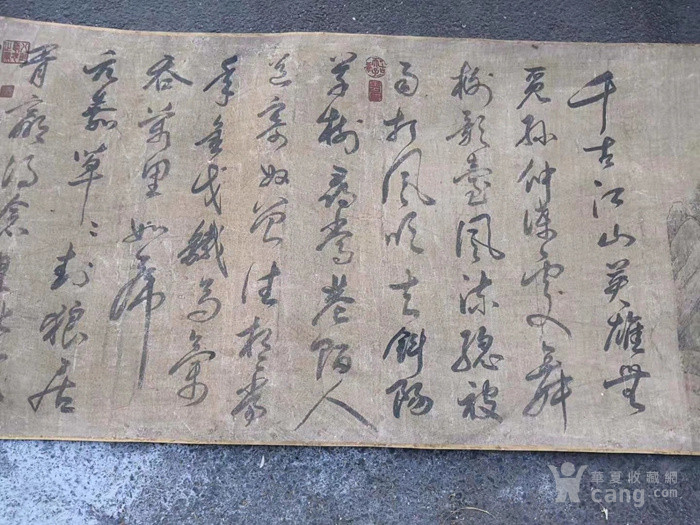 千古江山英雄無
覓孫仲謀處舞
榭歌臺風流總被
雨打風吹去斜陽
草樹尋常巷陌人
道寄奴曾住想當
年金戈鐵馬氣
吞萬里如虎
元嘉草〻封狼居
胥贏得倉
華夏收藏網
cang.com